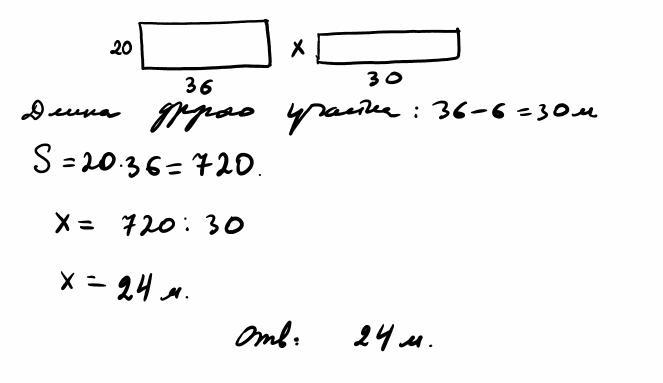 20 x
36 30
Длина другого участка : 36-6=30м
S=20·36=720.
x= 720: 30
x= 24 м.
Отв: 24 м.